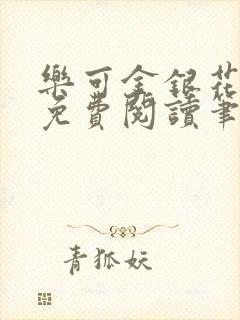 樂可金銀花
免費閱讀筆
青狐妖